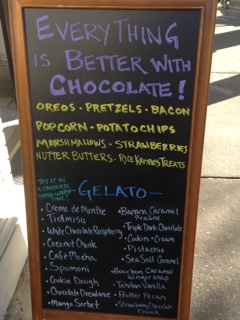 EVERYTHING
IS BETTER WITH
CHOCOLATE!
OREOS - PRETZELS - BACON
POPCORN - POTATO CHIPS
MARSHMALLOWS - STRAWBERRIES
NUTTER BUTTERS - RICE KRISPIES TREATS
TRY IT IN
A CHOCOLATE
DIPPED WAFFLE
CONE!
-GELATO-
• Creme de Menthe
• Tiramisu
• White Chocolate Raspberry
• Coconut Chunk
• Cafe Mocha
• Spumoni
• Cookie Dough
• Chocolate Decadence
• Mango Sorbet
• Banana Caramel
Praline
• Triple Dark Chocolate
• Cookies + Cream
• Pistachio
• Sea Salt Caramel
• Bourbon Caramel
Ginger Snap
• Tahitian Vanilla
• Butter Pecan
• Strawberry Chocolate
Chunk